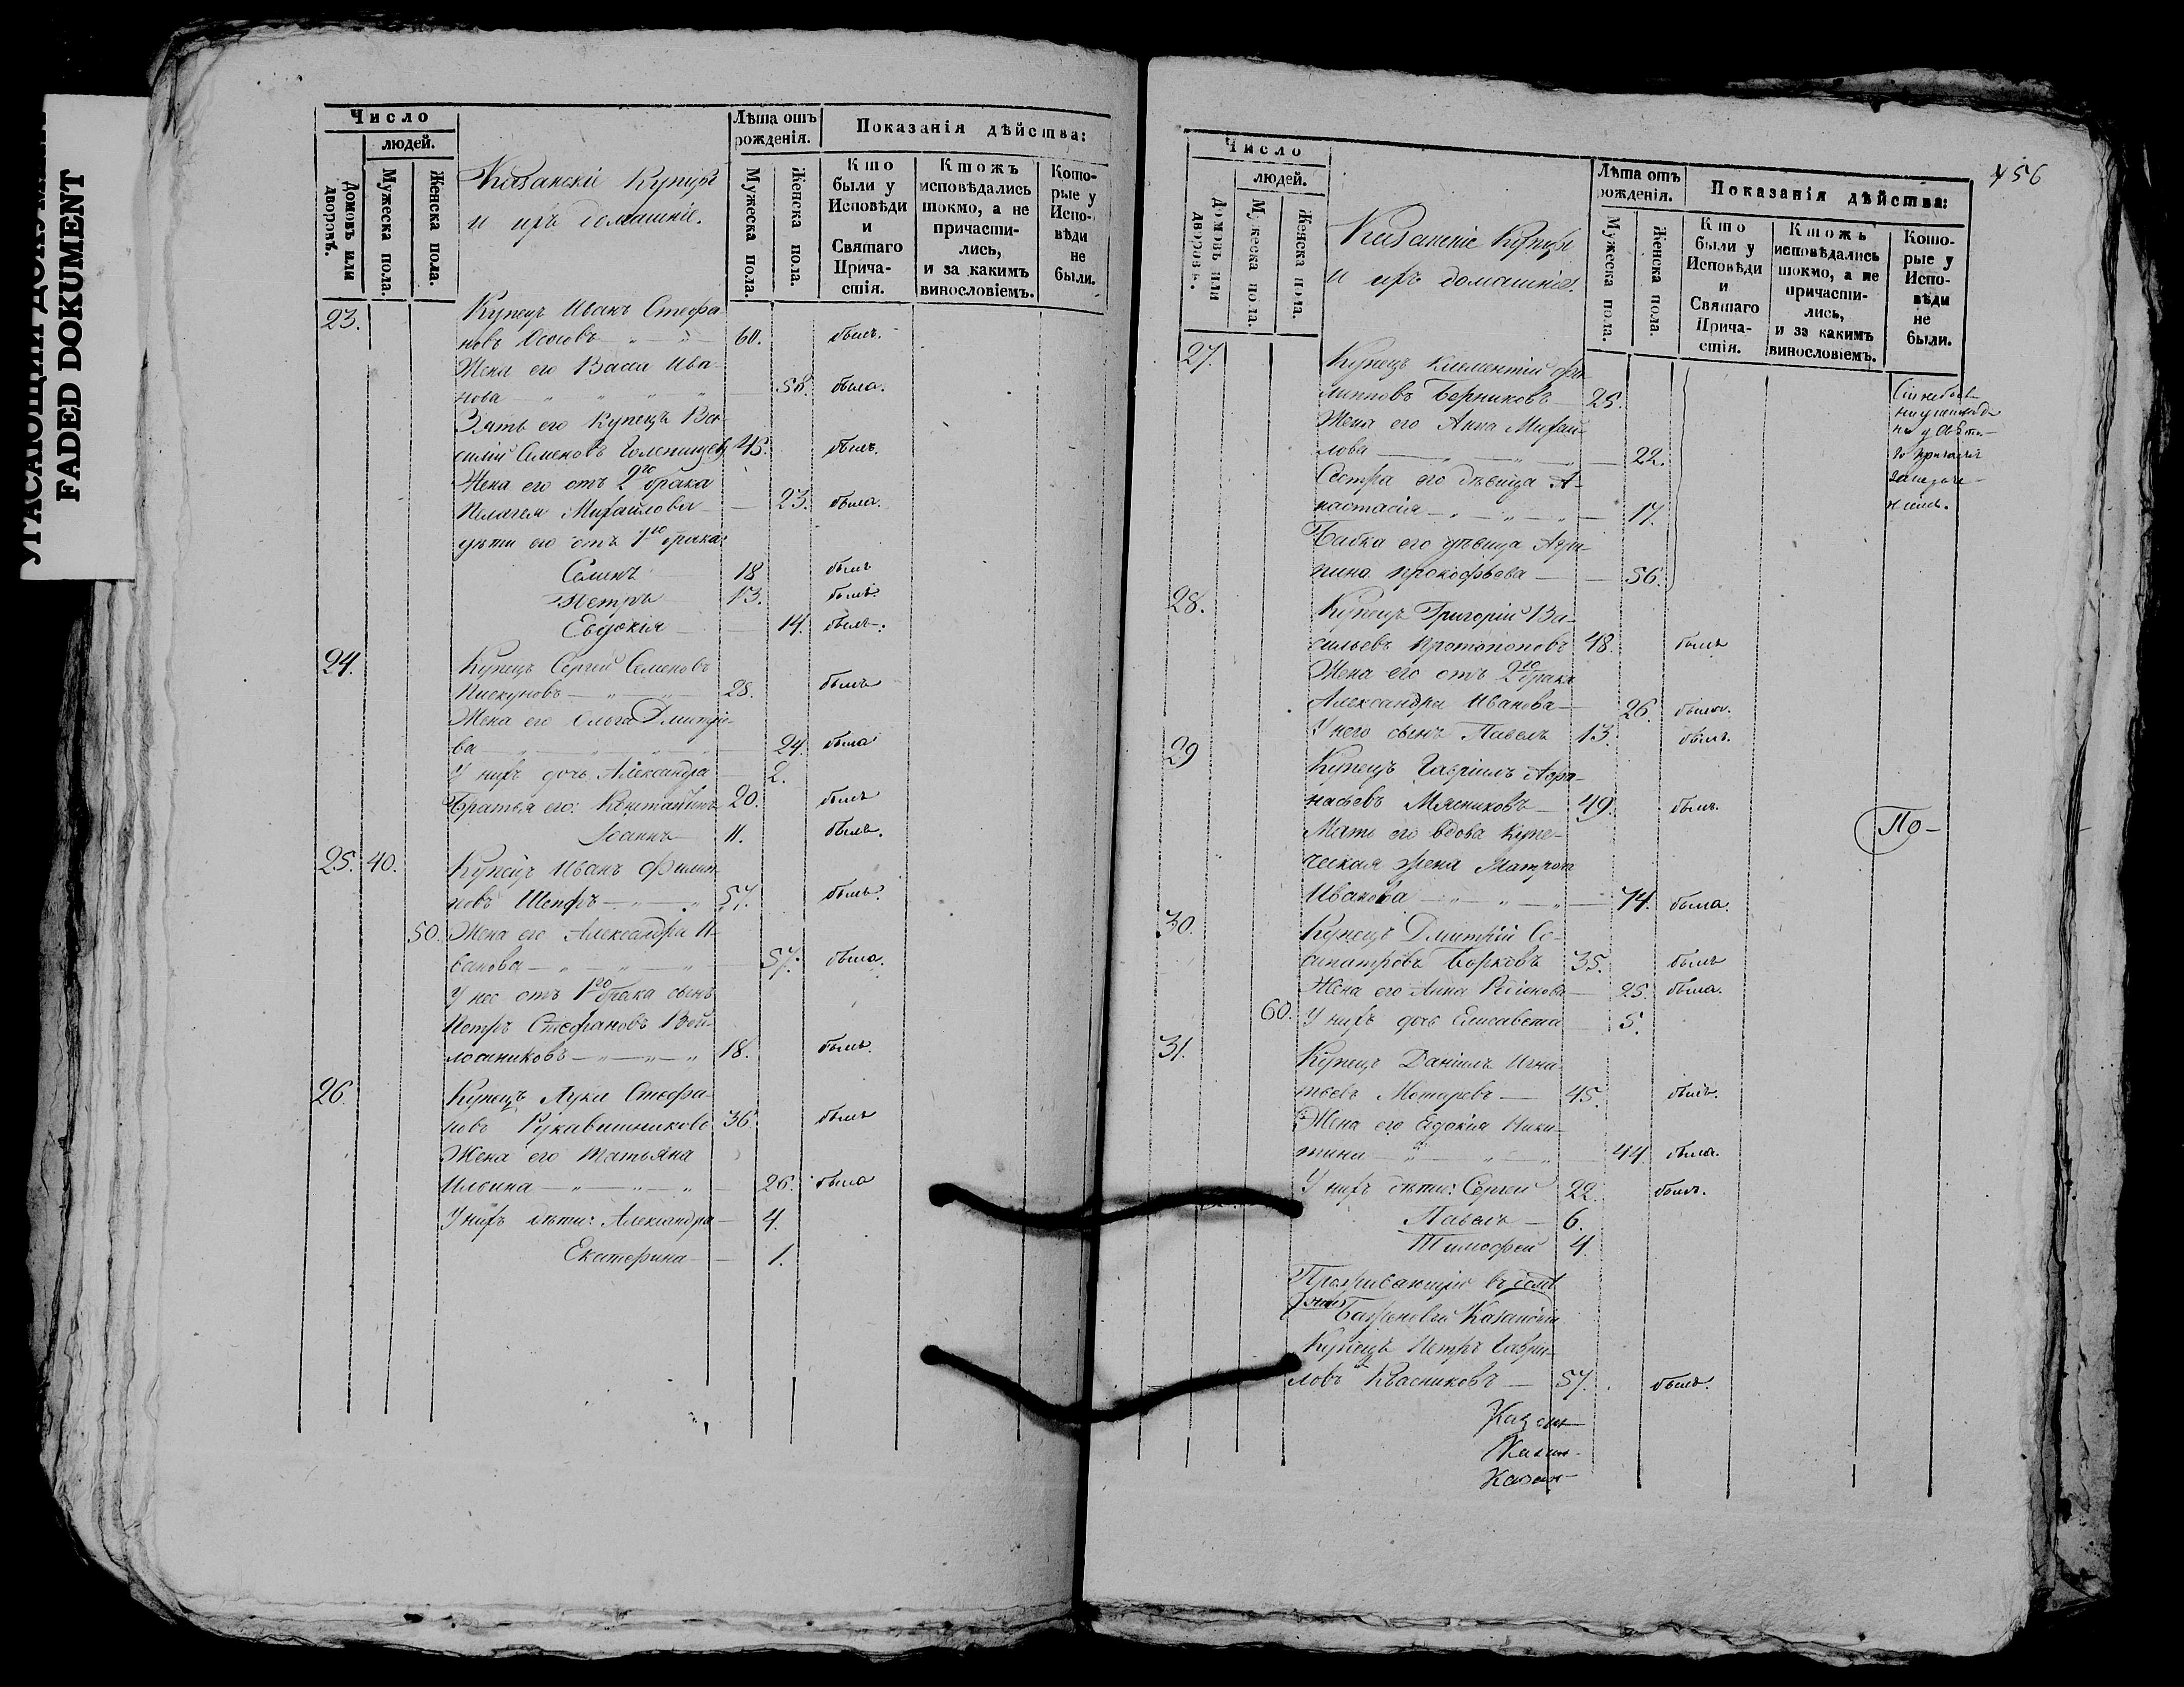 УГАСАЮЩИЙ ДОКУМЕНТ
FADED DOKUMENT
Число
людей.
Домовъ или дворовъ.
Мужеска пола.
Женска пола.
Казанскіе Купцы
и ихъ домашніе.
Лѣта отъ рожденія.
Мужеска пола.
Женска пола.
Показанія дѣйства:
Кто были у Исповѣди и Святаго Причастія.
Ктожъ исповѣдались токмо, а не причастились, и за какимъ винословіемъ.
Которые у Исповѣди не были.
23. Купецъ Иванъ Стефа-
новъ 60. былъ.
Жена его Васса Ива-
нова 58. была.
Зять его Купецъ Ва-
силій Семеновъ 45. былъ.
Жена его отъ 2го брака
Пелагея Михайлова 23. была.
дѣти его отъ 1го брака:
Семенъ 18 былъ
Петръ 13. былъ.
Евдокія 14.
24. Купецъ Сергій Семеновъ
Пискуновъ 28. былъ
Жена его Ольга Дмитріе-
ва 24. была
У нихъ дочь Александра 2.
Братья его: Константинъ 20. былъ
Іоаннъ 11. былъ.
25. 40. Купецъ Иванъ Филип-
повъ 57. былъ.
50. Жена его Александра И-
ванова 57. была.
У нее отъ 1го брака сынъ
Петръ Стефановъ Вой-
лошниковъ 18. былъ.
26. Купецъ Лука Стефа-
новъ Рукавишниковъ 36. былъ
Жена его Татьяна
Ильина 26. была
У нихъ дѣти: Александра 4.
Екатерина 1.
456
Число
людей.
Домовъ или дворовъ.
Мужеска пола.
Женска пола.
Казанскіе Купцы
и ихъ домашніе.
Лѣта отъ рожденія.
Мужеска пола.
Женска пола.
Показанія дѣйства:
Кто были у Исповѣди и Святаго Причастія.
Ктожъ исповѣдались токмо, а не причастились, и за какимъ винословіемъ.
Которые у Исповѣди не были.
27. Купецъ Климентій Фи-
липповъ Берниковъ 25.
Жена его Анна Михай-
лова 22.
Сестра его дѣвица А-
настасія 17.
Бабка его дѣвица Агри-
пина Прокофьева 56.
28. Купецъ Григорій Ва-
сильевъ Протопоповъ 48. былъ
Жена его отъ 2го брака
Александра Иванова 26. была.
У него сынъ Павелъ 13. былъ.
29 Купецъ Гавріилъ Афа-
насьевъ Мясниковъ 49. былъ.
Мать его вдова купе-
ческая жена Матрона
Иванова 74. была.
По-
30. Купецъ Дмитрій Со-
сипатровъ Борковъ 35. былъ
Жена его Анна 25. была.
60. У нихъ дочь Елисавета 5.
31. Купецъ Даніилъ Игна-
тьевъ 45. былъ.
Жена его Евдокія Ники-
тина 44. была.
У нихъ дѣти: Сергей 22. былъ.
Павелъ 6.
Тимофей 4.
Проживающій въ домѣ
Баженовой Казанскій
Купецъ Петръ Гаври-
ловъ Квасниковъ 57. былъ.
Казан-
Казан-
Казан-